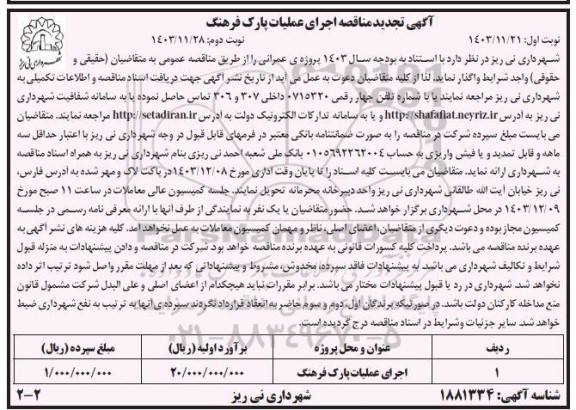 آگهی تجدید مناقصه اجرای عملیات پارک فرهنگ
نوبت اول: ۱۴۰۳/۱۱/۲۱
نوبت دوم: ۱۴۰۳/۱۱/۲۸
شهرداری نی ریز در نظر دارد با استناد به بودجه سال ۱۴۰۳ پروژه ی عمرانی را از طریق مناقصه عمومی به متقاضیان (حقیقی و
حقوقی) واجد شرایط واگذار نماید. لذا از کلیه متقاضیان دعوت به عمل می آید از تاریخ نشر آگهی جهت دریافت اسناد مناقصه و اطلاعات تکمیلی به
شهرداری نی ریز مراجعه نمایند. یا با شماره تلفن چهار رقمی ۰۷۱۵۳۲۰ داخلی ۳۰۷ و ۳۰۶ تماس حاصل نموده یا به سامانه شفافیت شهرداری
نی ریز به آدرس http://shafafiat.neyriz.ir و یا به سامانه تدارکات الکترونیک دولت به آدرس http://setadiran.ir مراجعه نمایند. متقاضیان
می بایست مبلغ سپرده شرکت در مناقصه را به صورت ضمانتنامه بانکی معتبر در فرمهای قابل قبول در وجه شهرداری نی ریز با اعتبار حداقل سه
ماهه و قابل تمدید و یا فیش واریزی به حساب ۰۱۰۵۶۹۲۲۶۲۰۰۴ بانک ملی شعبه احمد نی ریزی بنام شهرداری نی ریز به همراه اسناد مناقصه
به شهرداری ارائه نماید. متقاضیان می بایست کلیه اسناد را تا پایان وقت اداری مورخ ۱۴۰۳/۱۲/۰۸ در پاکت لاک و مهر شده به آدرس فارس،
نی ریز خیابان آیت الله طالقانی شهرداری نی ریز واحد دبیرخانه محرمانه تحویل نمایند. جلسه کمیسیون عالی معاملات در ساعت ۱۱ صبح مورخ
۱۴۰۳/۱۲/۰۹ در محل شهرداری برگزار خواهد شد. حضور متقاضیان یا یک نفر به نمایندگی از طرف آنها با ارائه معرفی نامه رسمی در جلسه
کمیسیون مجاز بوده و دعوت دیگری از متقاضیان، اعضای اصلی، ناظر و مهمان کمیسیون معاملات به عمل نخواهد آمد. کلیه هزینه های نشر آگهی به
عهده برنده مناقصه می باشد. پرداخت کلیه کسورات قانونی به عهده برنده مناقصه خواهد بود شرکت در مناقصه و دادن پیشنهادات به منزله قبول
شرایط و تکالیف شهرداری می باشد. به پیشنهادات فاقد سپرده، مخدوش، مشروط و پیشنهاداتی که بعد از مهلت مقرر واصل شود ترتیب اثر داده
نخواهد شد. شهرداری در رد یا قبول پیشنهادات مختار می باشد. برابر مقررات نباید هیچکدام از اعضای اصلی و علی البدل شرکت مشمول قانون
منع مداخله کارکنان دولت باشد. در صورتیکه برندگان اول، دوم و سوم حاضر به انعقاد قرارداد نگردند سپرده ی آنها به ترتیب به نفع شهرداری ضبط
خواهد شد. سایر جزئیات و شرایط در اسناد مناقصه درج گردیده است.
ردیف عنوان و محل پروژه برآورد اولیه (ریال) مبلغ سپرده (ریال)
۱ اجرای عملیات پارک فرهنگ ۲۰/۰۰۰/۰۰۰/۰۰۰ ۱/۰۰۰/۰۰۰/۰۰۰
شناسه آگهی: ۱۸۸۱۳۳۴ شهرداری نی ریز ۲-۲
۰۲۱-۸۸۳۴۹۶۷۰-۵